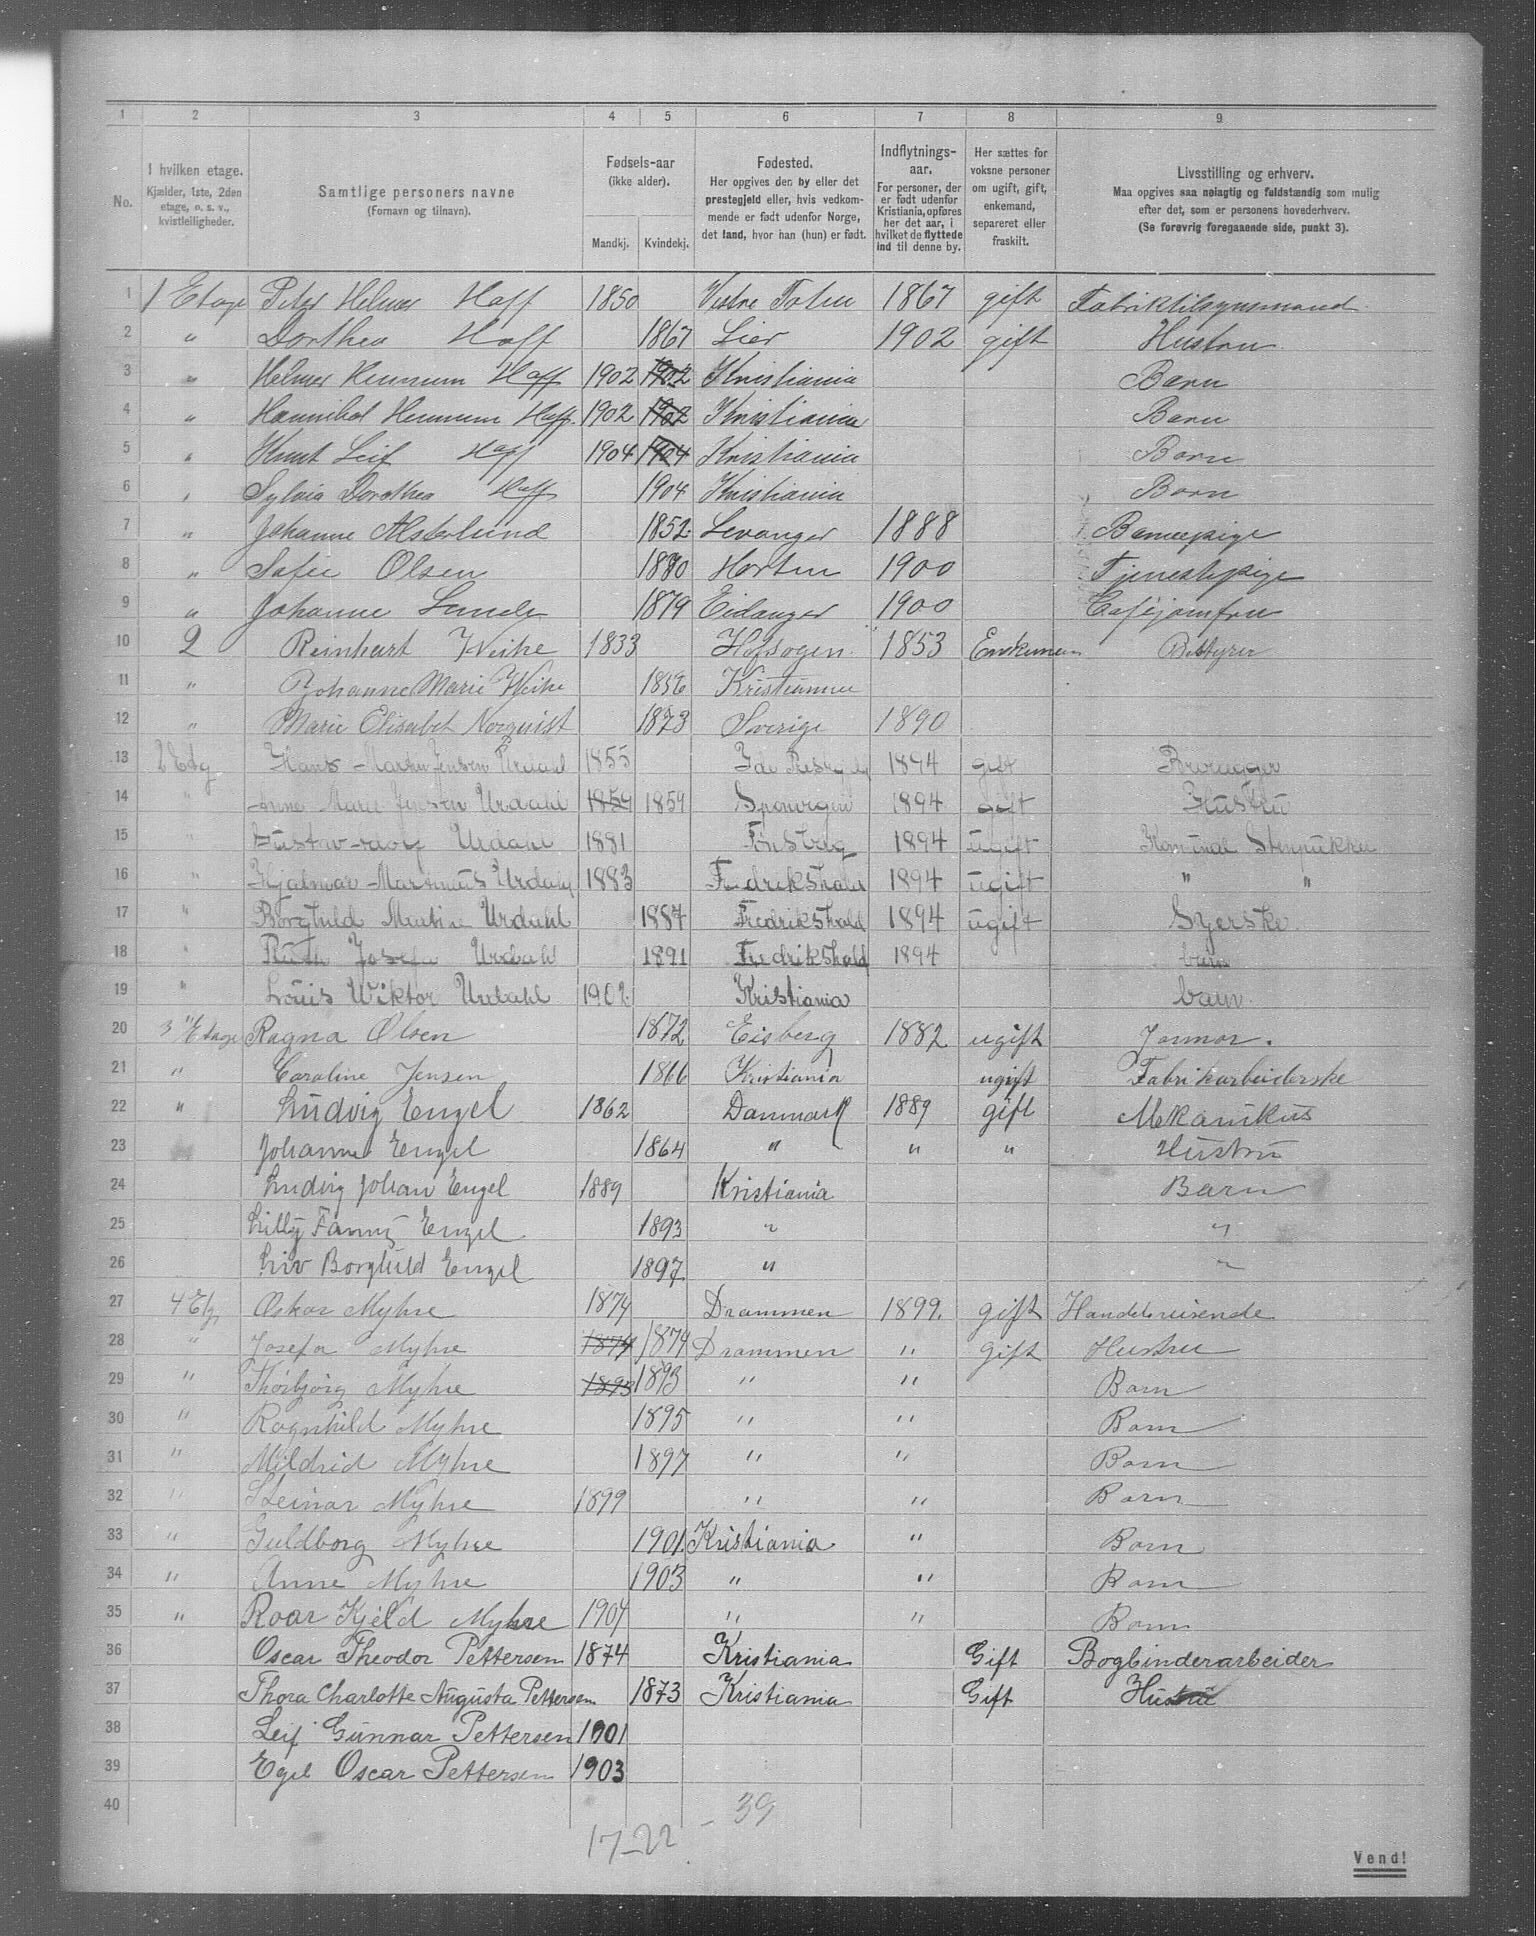 1 2 3 4 5 6 7 8 9
No.
I hvilken etage.
Kjælder, 1ste, 2den
etage, o. s. v.,
kvistleiligheder.
Samtlige personers navne
(Fornavn og tilnavn).
Fødsels-aar
(ikke alder).
Mandkj. Kvindekj.
Fødested.
Her opgives den by eller det
prestegjeld eller, hvis vedkom-
mende er født udenfor Norge,
det land, hvor han (hun) er født.
Indflytnings-
aar.
For personer, der
er født udenfor
Kristiania, opføres
her det aar, i
hvilket de flyttede
ind til denne by.
Her sættes for
voksne personer
om ugift, gift,
enkemand,
separeret eller
fraskilt.
Livsstilling og erhverv.
Maa opgives saa nøiagtig og fuldstændig som mulig
efter det, som er personens hovederhverv.
(Se forøvrig foregaaende side, punkt 3).
1 1 Etage Peter Helmer Hoff 1850 Vestre Toten 1867 gift Fabriktilsynsmand
2 " Dorthea Hoff 1867 Lier 1902 gift Hustru
3 " Helmer Hoff 1902 1902 Kristiania Barn
4 " Hannibal Hoff 1902 1902 Kristiania Barn
5 " Knut Leif Hoff 1904 1904 Kristiania Barn
6 " Sylvia Dorothea Hoff 1904 Kristiania Barn
7 " Johanne Alsterlund 1852 Levanger 1888 Barnepige
8 " Sofie Olsen 1880 Horten 1900 Tjenestepige
9 " Johanne 1879 Eidanger 1900 Cafejomfru
10 2 Reinhart Weihe 1833 Hofsogen 1853 Enkeman Bestyrer
11 " Johanne Marie Weihe 1856 Kristiania
12 " Marie Elisabet Norquist 1873 Sverige 1890
13 2 Etg Hans Martin Jensen Urdahl 1855 Ide 1894 gift Brolægger
14 " Anne Marie Jensen Urdahl 1859 1859 Sponvigen 1894 gift Hustru
15 " Gustav Adolf Urdahl 1881 1894 ugift Stenpukker
16 " Hjalmar Martinius Urdahl 1883 Fredrikshald 1894 ugift " "
17 " Borghild Martine Urdahl 1887 Fredrikshald 1894 ugift Syerske
18 " Ruth Josefa Urdahl 1891 Fredrikshald 1894 barn
19 " Louis Wiktor Urdahl 1902 Kristiania barn
20 3 Etage Ragna Olsen 1872 Eisberg 1882 ugift Jormor.
21 " Caroline Jensen 1866 Kristiania ugift Fabrikarbeiderske
22 " Ludvig Engel 1862 Danmark 1889 gift Mekanikus
23 Johanne Engel 1864 " " " Hustru
24 Ludvig Johan Engel 1889 Kristiania Barn
25 Lilly Fanny Engel 1893 " "
26 Liv Borghild Engel 1897 " "
27 4 Etg. Oskar Myhre 1874 Drammen 1899. gift Handelsreisende
28 " Josefa Myhre 1874 1874 Drammen " gift Hustru
29 " Thorbjørg Myhre 1893 1893 " " Barn
30 " Ragnhild Myhre 1895 " " Barn
31 " Mildrid Myhre 1897 " " Barn
32 " Steinar Myhre 1899 " " Barn
33 " Guldborg Myhre 1901. Kristiania " Barn
34 " Anne Myhre 1903 " " Barn
35 " Roar Kjeld Myhre 1904 " " Barn
36 Oscar Theodor Pettersen 1874 Kristiania Gift Bogbinderarbeider
37 Thora Charlotte Augusta Pettersen 1873 Kristiania Gift Hustru
38 Leif Gunnar Pettersen 1901
39 Egil Oscar Pettersen 1903
40
17-22 - 39
Vend!